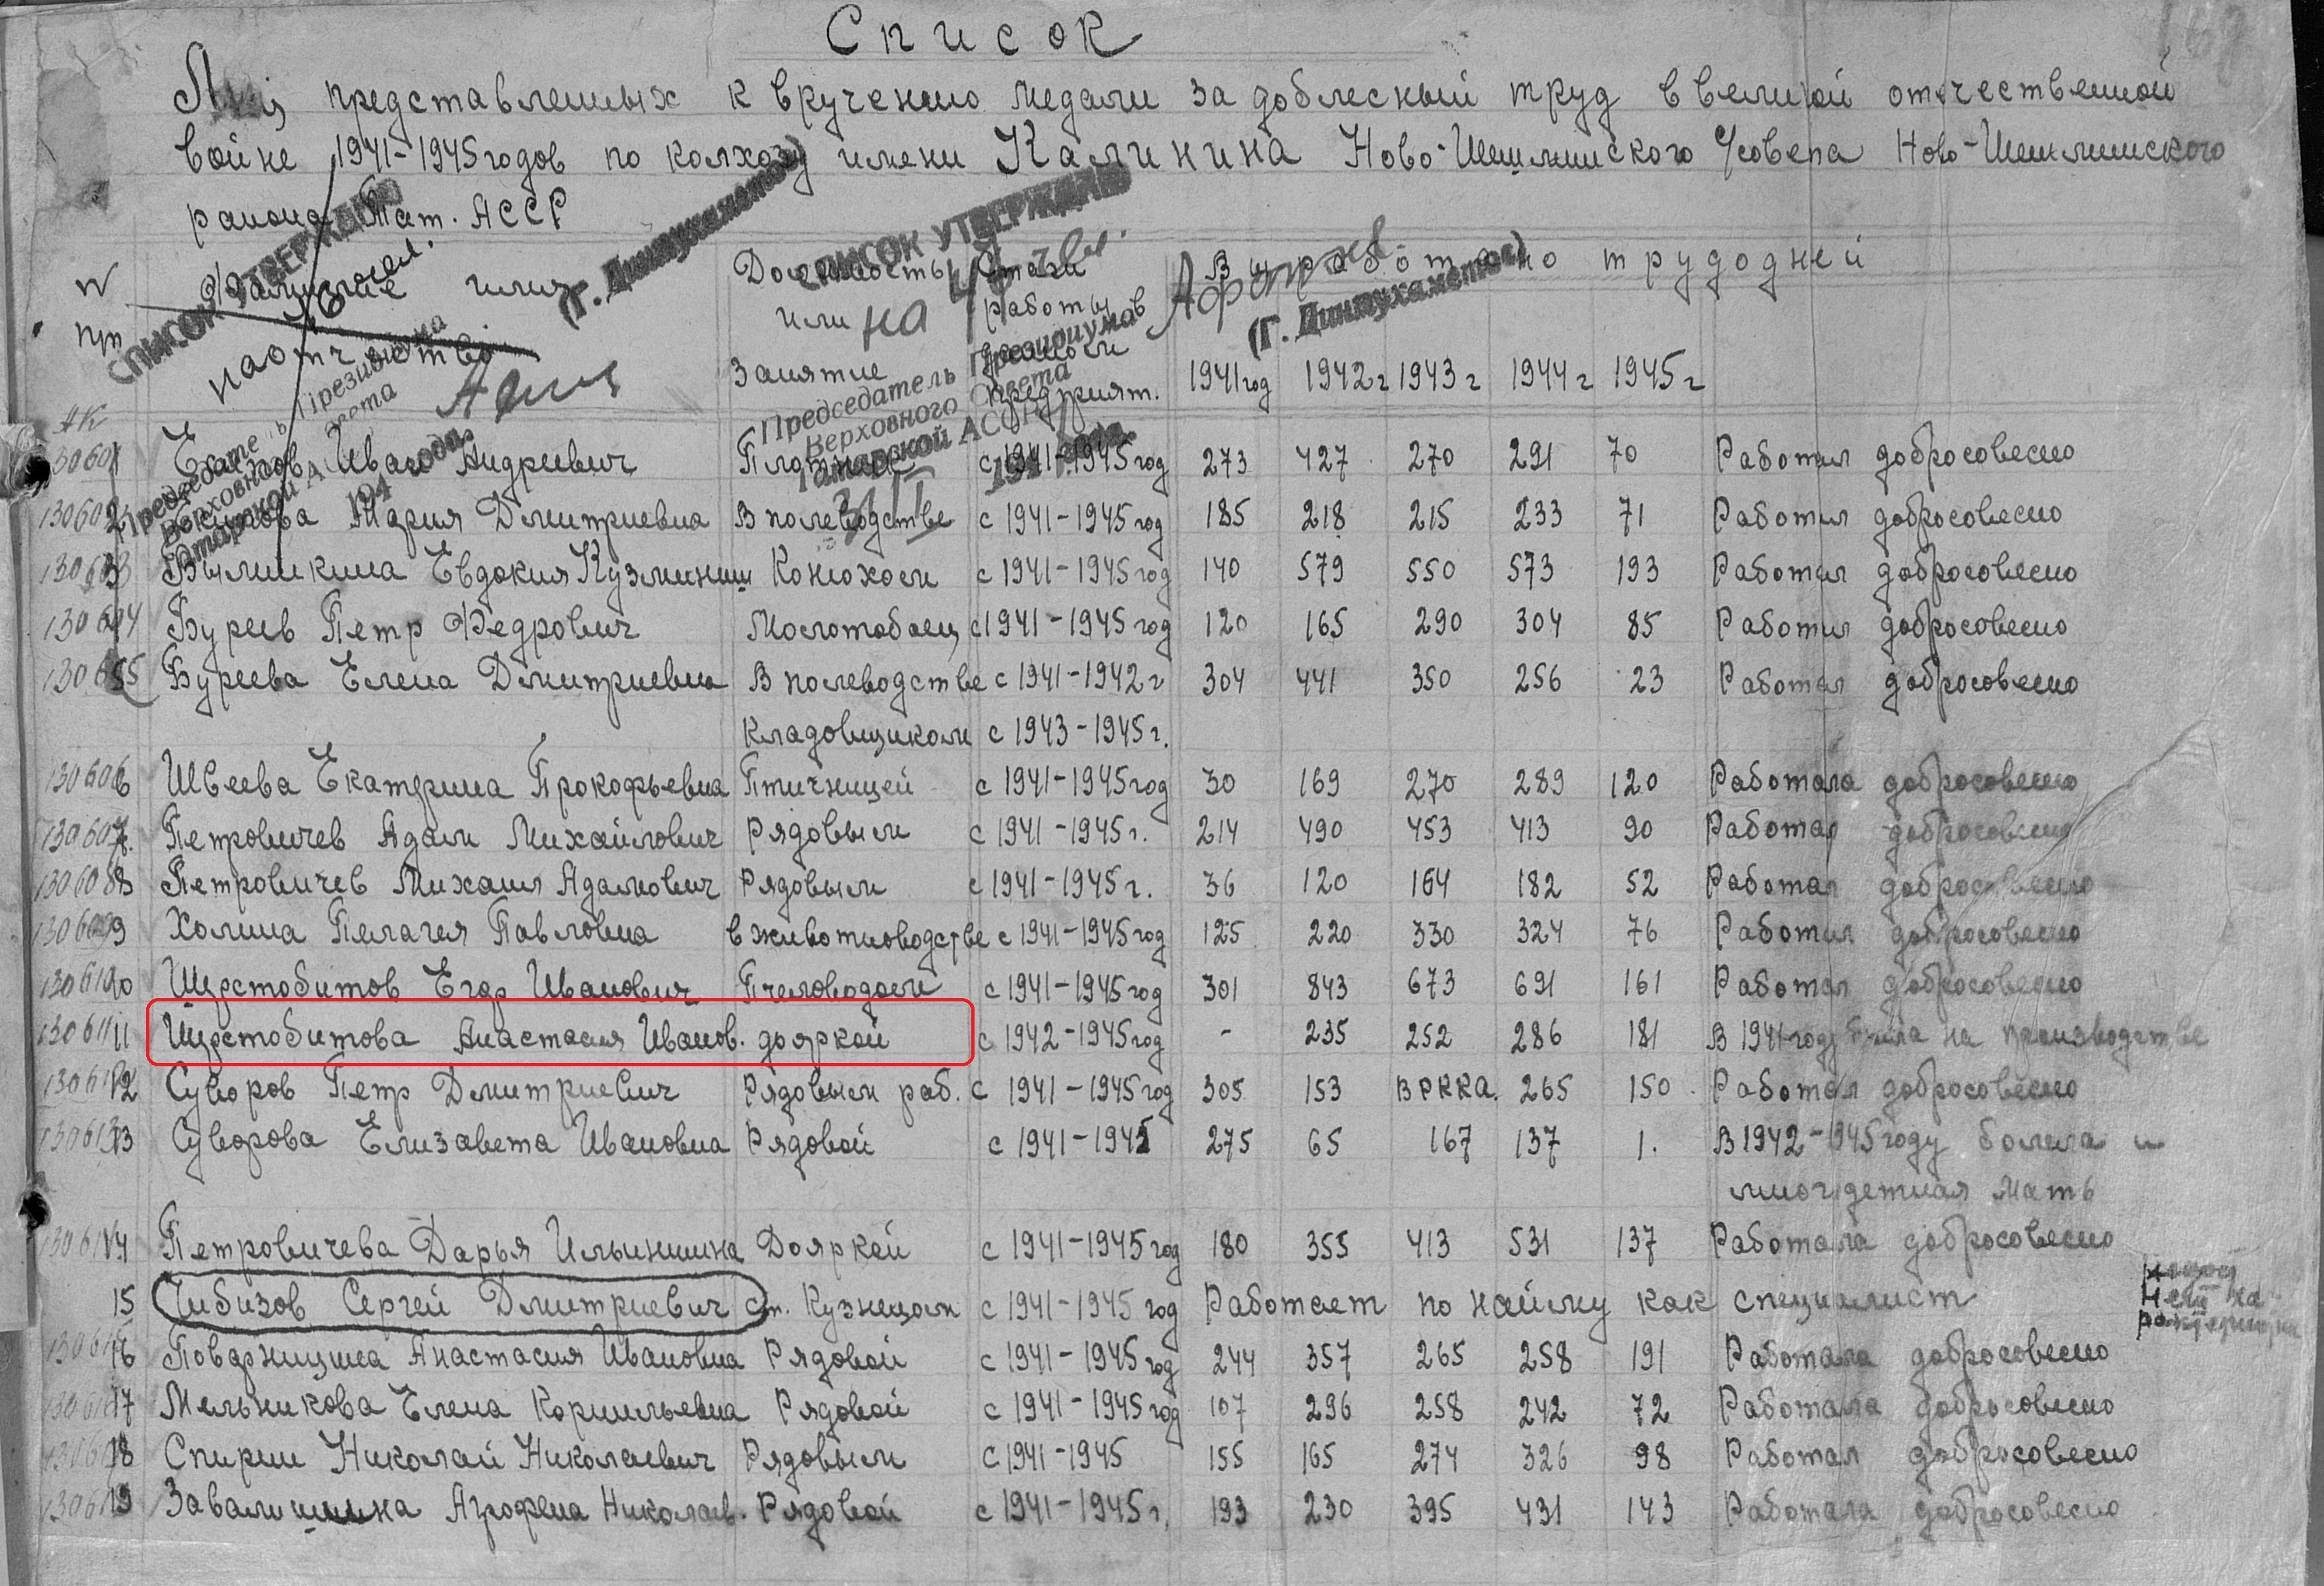 Список
Лиц представленных к вручению медали за доблесный труд в великой отечественной
войне 1941-1945 годов по колхозу имени Калинина Ново-Шешминского с/совета Ново-Шешминского
района Тат. АССР
СПИСОК УТВЕРЖДАЮ
СПИСОК УТВЕРЖДАЮ
(Г. Динмухаметов)
(Г. Динмухаметов)
N пп Фамилие имя и отчество Должность или занятие Стаж работы в данном предприят. Выработано трудодней
на 18 чел.
Председатель Президиума
Верховного Совета
Татарской АССР
Председатель Президиума
Верховного Совета
Татарской АССР
194 года.
1941 год 1942 г 1943 г 1944 г 1945 г
Иван Андреевич с 1941-1945 год 273 427 270 291 70 Работал добросовесно
2 Мария Дмитриевна В полеводстве с 1941-1945 год 185 218 215 233 71 Работал добросовесно
130603 3 Евдокия Кузминиш Конюхом с 1941-1945 год 140 579 550 573 193 Работал добросовесно
130604 4 Буреев Петр Федрович Молотобоец с 1941-1945 год 120 165 290 304 85 Работал добросовесно
130605 5 Буреева Елена Дмитриевна В полеводстве с 1941-1942 г 304 441 350 256 23 Работал добросовесно
кладовщиком с 1943-1945 г.
130606 6 Швеева Екатерина Прокофьевна Птичницей с 1941-1945 год 30 169 270 289 120 Работала добросовесно
130607 7. Петровичев Адам Михайлович Рядовым с 1941-1945 г. 214 490 453 413 90 Работал добросовесно
130608 8 Петровичев Михаил Адамович Рядовым с 1941-1945 г. 36 120 164 182 52 Работал добросовесно
130609 9 Холина Пелагея Павловна в животноводстве с 1941-1945 год 125 220 330 324 76 Работал добросовесно
130610 10 Шерстобитов Егор Иванович Пчеловодом с 1941-1945 год 301 843 673 691 161 Работал добросовесно
130611 11 Шерстобитова Анастасия Иванов. дояркой с 1942-1945 год - 235 252 286 181 В 1941 году была на производстве
130612 12 Суворов Петр Дмитриевич Рядовым раб. с 1941-1945 год 305 153 В РККА. 265 150 Работал добросовесно
130613 13 Суворова Елизавета Ивановна Рядовой с 1941-1945 275 65 167 137 1. В 1942-1945 году болела и
многодетная мать
130614 14 Петровичева Дарья Ильинишна Дояркой с 1941-1945 год 180 355 413 531 137 Работала добросовесно
15 Чибизов Сергей Дмитриевич ст. Кузнецом с 1941-1945 год Работает по найму как специалист
16 Поварницина Анастасия Ивановна Рядовой с 1941-1945 год 244 357 265 258 191 Работала добросовесно
17 Мельникова Елена Корнильевна Рядовой с 1941-1945 год 107 296 258 242 72 Работала добросовесно
18 Спирин Николай Николаевич Рядовым с 1941-1945 155 165 274 326 98 Работал добросовесно
19 Завалишина Агрофена Николаев. Рядовой с 1941-1945 г. 193 230 395 431 143 Работала добросовесно